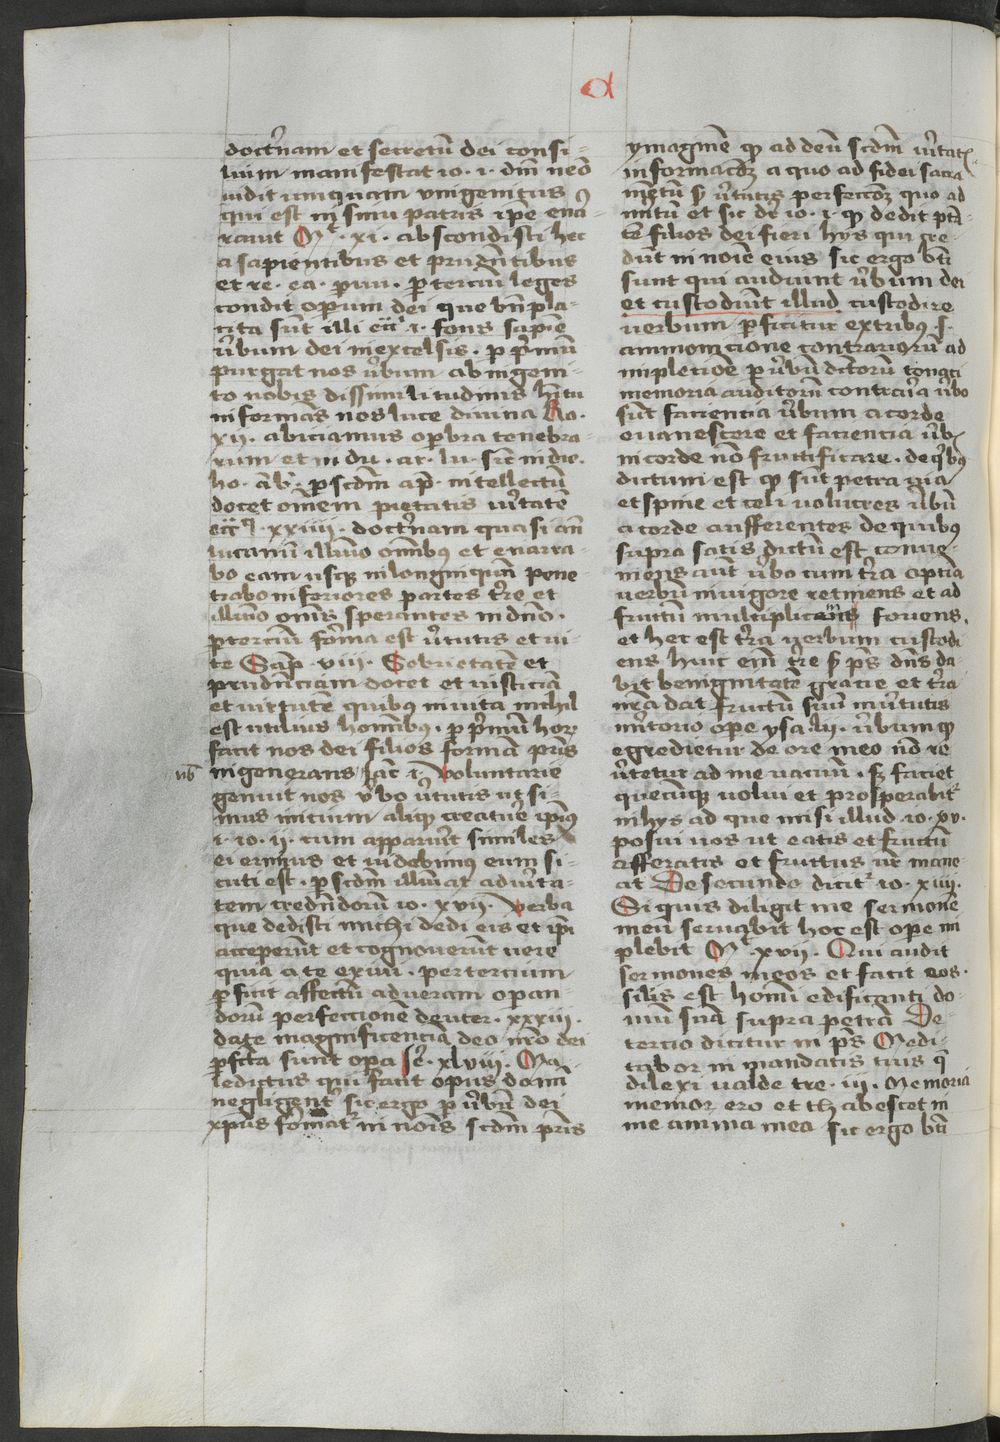 d
doctrinam et secretū dei consi-
lium manifestat io. i. dm̄ nēo
uidit umquam vnigenitus
qui est in sinu patris ipe ena-
rauit Mt. xi. abscondisti hec
a sapientibus et prudētibus
et re. ea. puu. p terciū leges
condit operum dei que bn̄ pla-
cita sūt illi ecci i. fons sapie
ūbum dei in excelsis. p p̄mū
purgat nos ūbum ab ingeni-
to nobis dissimilitudinis
informās nos luce diuina Ro.
xii. abiciamus opera tenebra-
rum et in du. ar. lu. sic in die.
ho. ab. p scdm̄ intellectū
docet omēm pietatis ūitatē
ecci xxiiii. doctrinam quasi an̄
lucanū illumino om̄ibus et enarra-
bo eam usque in longinquū pene
trabo inferiores partes tr̄re et
illumino om̄s sperantes in dn̄o.
p terciū forma est ūtutis et ui-
te Sap̄. viii. Sobrietatē et
prudn̄ciam docet et iusticiā
et uirtutē quibus in uita nichil
est utilius hominibus. p p̄mū hor
facit nos dei filios formā pris
ingenerans Iac̄ i. Voluntarie
nō
genuit nos ūbo ūitatis ut si-
mus initium aliqd̄ creature ipius
i. io. ii. cum apparuit similes
ei erimus et uidebimus eum si-
cuti est. p scdm̄ illuīat ad ūita-
tem credn̄dorū io. xvii. Verba
que dedisti michi dedi eis et ipi
acceperūt et cognouerūt uere
quia a te exiui. per tercium
pficit affectū ad ueram operan-
dorū perfeccionē deuter. xxxiii.
date magnificenciā deo nr̄o dei
pfcta sunt opa Ie. xlviii. Ma-
ledictus qui facit opus domī
negligent̄ sic ergo p ūbū dei
xpūs format̄ in nobis scdm̄ pris
ymaginē qd̄ ad deū scdm̄ ūitat
informacōe a quo ad fidei sacra
mētū ūtutis perfeccōe quo ad
mitū et sic dr̄ io. i. qd̄ dedit ptā
tē filios dei fieri hys qui cre-
dūt in noīe eius sic ergo bti
sunt qui audiunt ūbum dei
et custodiūt illud custodire
uerbum pficitur ex tribus. s.
ammonicione contrariorū ad
impletioē p ūbū dictorū tenaci
memoria auditorū contraria ūbo
sūt faciencia ūbum a corde
euanescere et faciencia ūb
in corde nō fructificare. de qbus
dictum est qd̄ sūt petra uia
et spine et celi uolucres ūbū
a corde aufferentes de quibus
supra satis dictū est conue-
niens aūt ūbo cum tr̄a aptiā
uerbū in uigore retinens et ad
fructū multiplicans fouens.
et hec est tr̄a uerbum custodi
ens huic eīm tr̄re ps̄ dns da
bit benignitatē gracie et tr̄a
nr̄a dat fructū suū in ūtutis
mīitorio ope ysa. lv. ūbum qd̄
egredietur de ore meo nō re
ūtetur ad me uacuū. sz faciet
quecunque uolui et prosperabit̄
in hys ad que misi illud io. xv.
posui uos ut eatis et fructū
afferatis et fructus ur̄ mane
at De secundo dicit̄ io. xiiii.
Si quis diligit me sermonē
meū seruabit hoc est ope im
plebit Mt. xvii. Qui audit
sermones meos et facit eos.
silis est homī edificanti do-
mū suā supra petrā De
tercio dicitur in ps̄ Medi-
tabor in mandatis tuis q̄
dilexi ualde tre. iii. Memoria
memor ero et thabescet in
me anima mea sic ergo bti